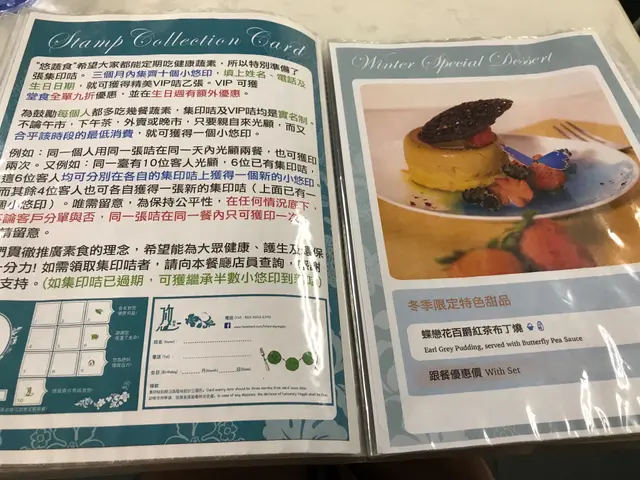 Stamp Collection Card
"悠蔬食"希望大家都能定期吃健康蔬素，所以特別準備了
張集印咭。三個月內集齊十個小悠印，填上姓名、電話及
生日日期，就可獲得精美VIP咭乙張。VIP 可獲
堂食全單九折優惠，並在生日週有額外優惠。
為鼓勵每個人都多吃幾餐蔬素，集印咭及VIP咭均是實名制。
不論午市、下午茶，外賣或晚市，只要親自來光顧，而又
合乎該時段的最低消費，就可獲得一個小悠印。
例如：同一個人用同一張咭在同一天內光顧兩餐，也可獲印
兩次。又例如：同一臺有10位客人光顧，6位已有集印咭，
這6位客人均可分別在各自的集印咭上獲得一個新的小悠印。
而其餘4位客人也可各自獲得一張新的集印咭（上面已有一
個小悠印）。唯需留意，為保持公平性，在任何情況底下，
論客戶分單與否，同一張咭在同一餐內只可獲印一次
請留意。
們貫徹推廣素食的理念，希望能為大眾健康、護生及環保
十分力! 如需領取集印咭者，請向本餐廳店員查詢，
支持。(如集印咭已過期，可獲繼承半數小悠印到
姓名 (Name)
電話 (Tel)
生日 (Birthday)
Winter Special Dessert
冬季限定特色甜品
蝶戀花百爵紅茶布丁燒
Earl Grey Pudding, served with Butterfly Pea Sauce
跟餐優惠價 With Set